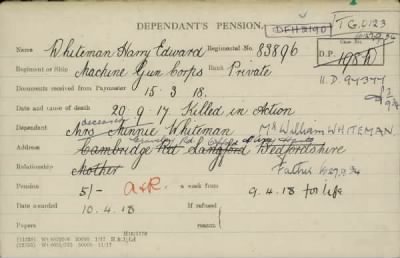 DEPENDANT'S PENSION.
T.G. 0123
Name Whiteman Harry Edward Regimental No. 83896
D.P.
Regiment or Ship Machine Gun Corps Rank Private
Documents received from Paymaster 15. 3. 18.
Date and cause of death 20. 9. 17. Killed in Action
deceased
Dependant Mrs Minnie Whiteman Mr William WHITEMAN.
Address Cambridge Rd Langford Bedfordshire
Relationship Mother Father
Pension 5/- a week from 9. 4. 18 for life
Date awarded 10. 4. 18 If refused
Papers reason